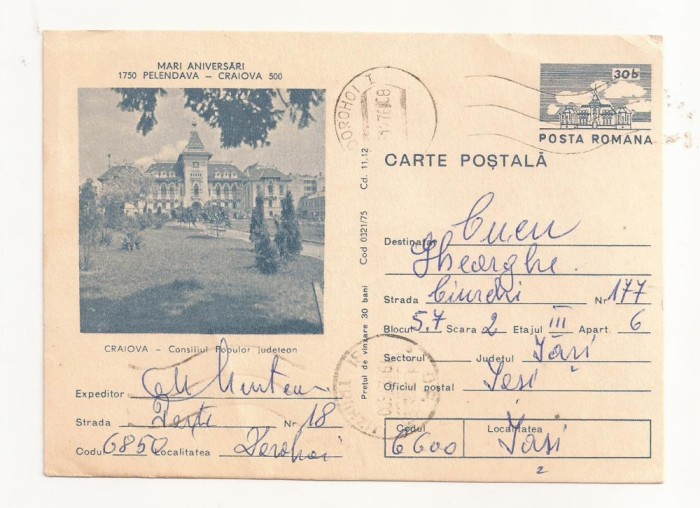 MARI ANIVERSĂRI
1750 PELENDAVA – CRAIOVA 500
CRAIOVA – Consiliul Popular județean
Expeditor
Strada Nr 18
Codul 6850 Localitatea Dorohoi
Prețul de vînzare 30 bani Cod 0321/75 Cd. 11.12
DOROHOI I
30b
POSTA ROMANA
CARTE POȘTALĂ
Destinatar Cucu
Gheorghe
Strada Ciurchi Nr 177
Blocul 5.7 Scara 2 Etajul III Apart 6
Sectorul Județul Iași
Oficiul postal Iași
Codul Localitatea
6600 Iași
2